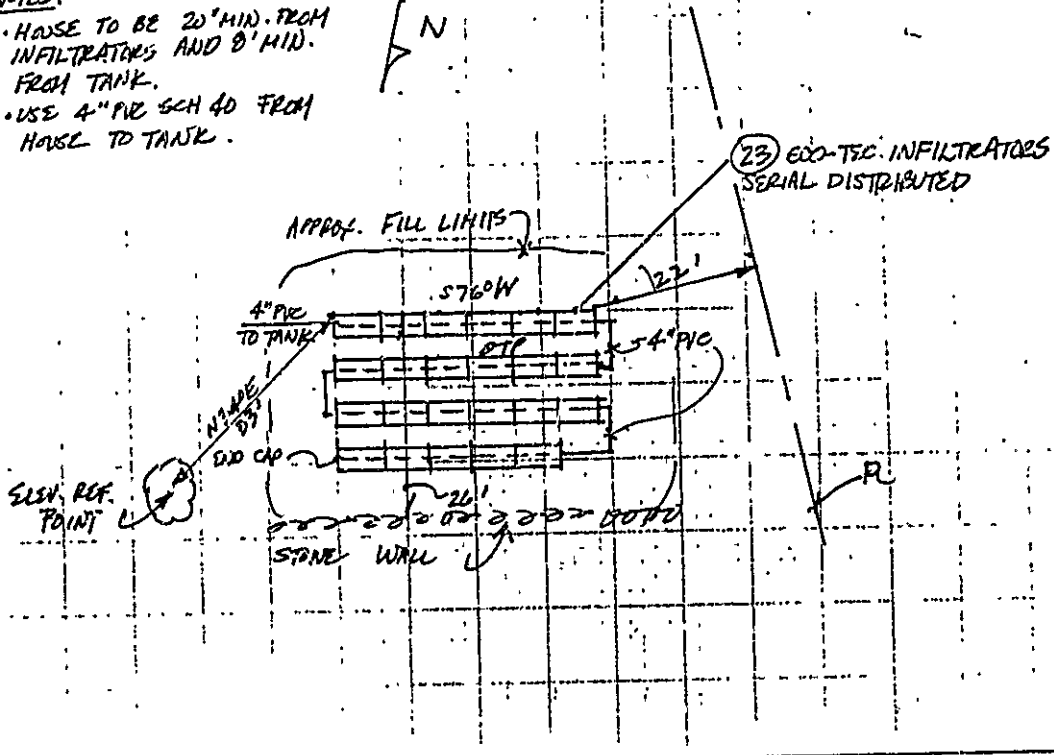 NOTES:
• HOUSE TO BE 20' MIN. FROM
INFILTRATORS AND 8' MIN.
FROM TANK.
• USE 4" PVC SCH 40 FROM
HOUSE TO TANK.
N
(23) ECO-TEC. INFILTRATORS
SERIAL DISTRIBUTED
APPROX. FILL LIMITS
S76°W
22'
4" PVC
TO TANK
TP
4" PVC
END CAP
ELEV. REF.
POINT
26'
STONE WALL